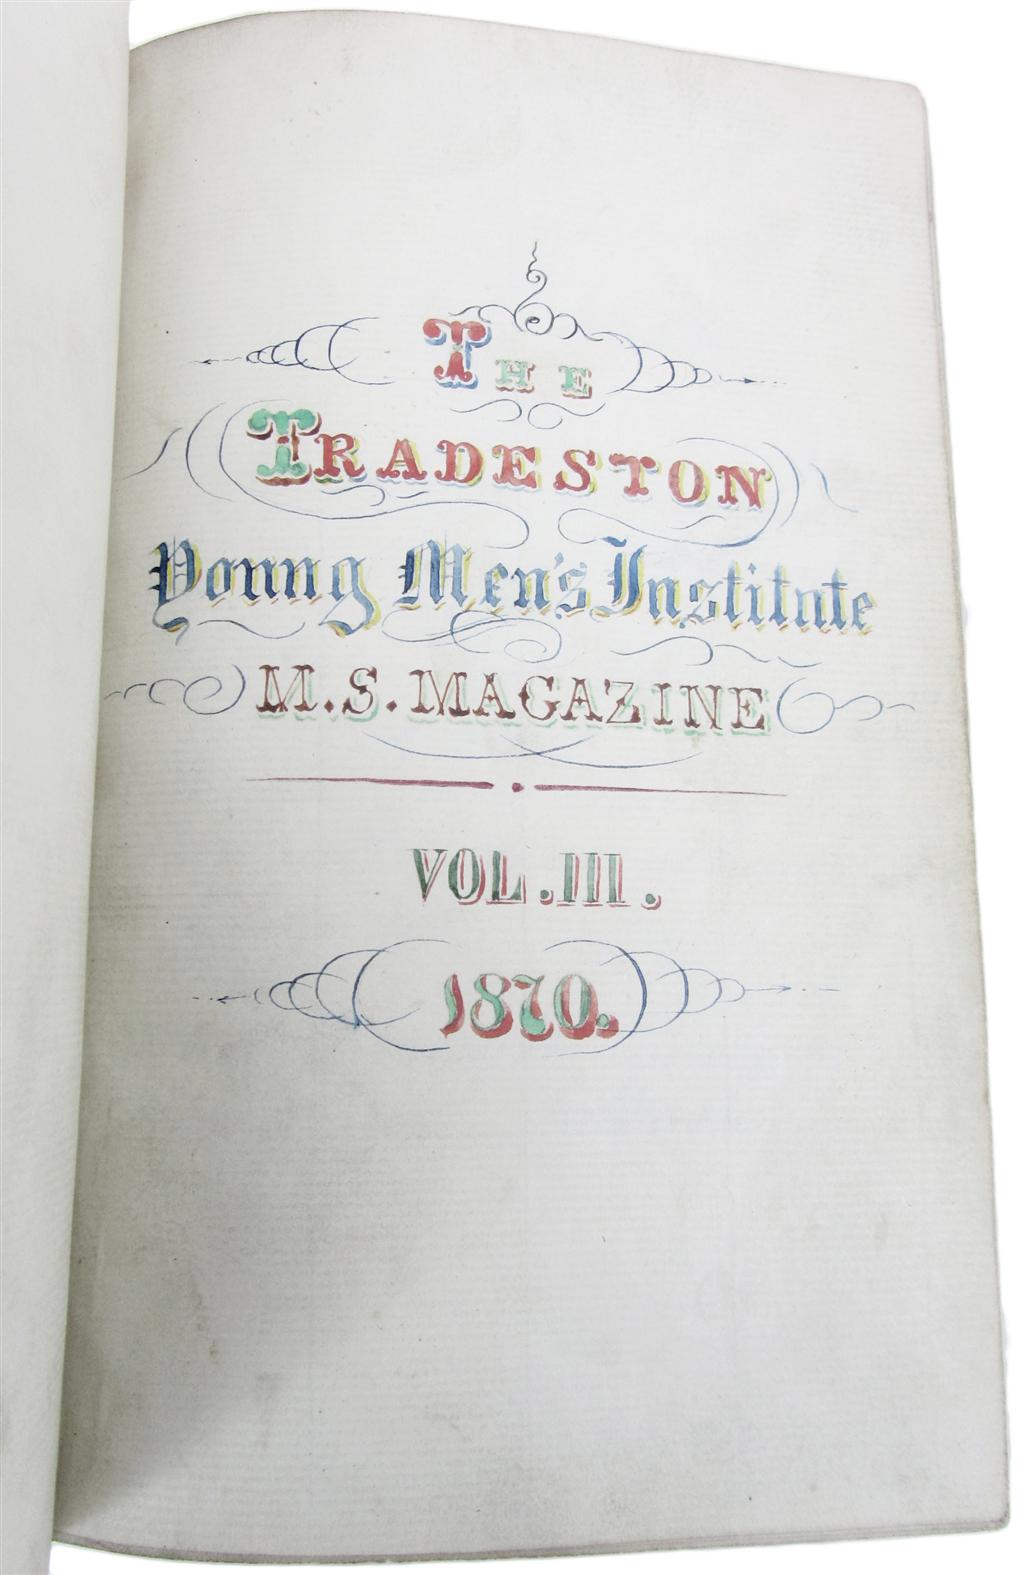 The
Tradeston
Young Men's Institute
M.S. MAGAZINE
VOL. III.
1870.